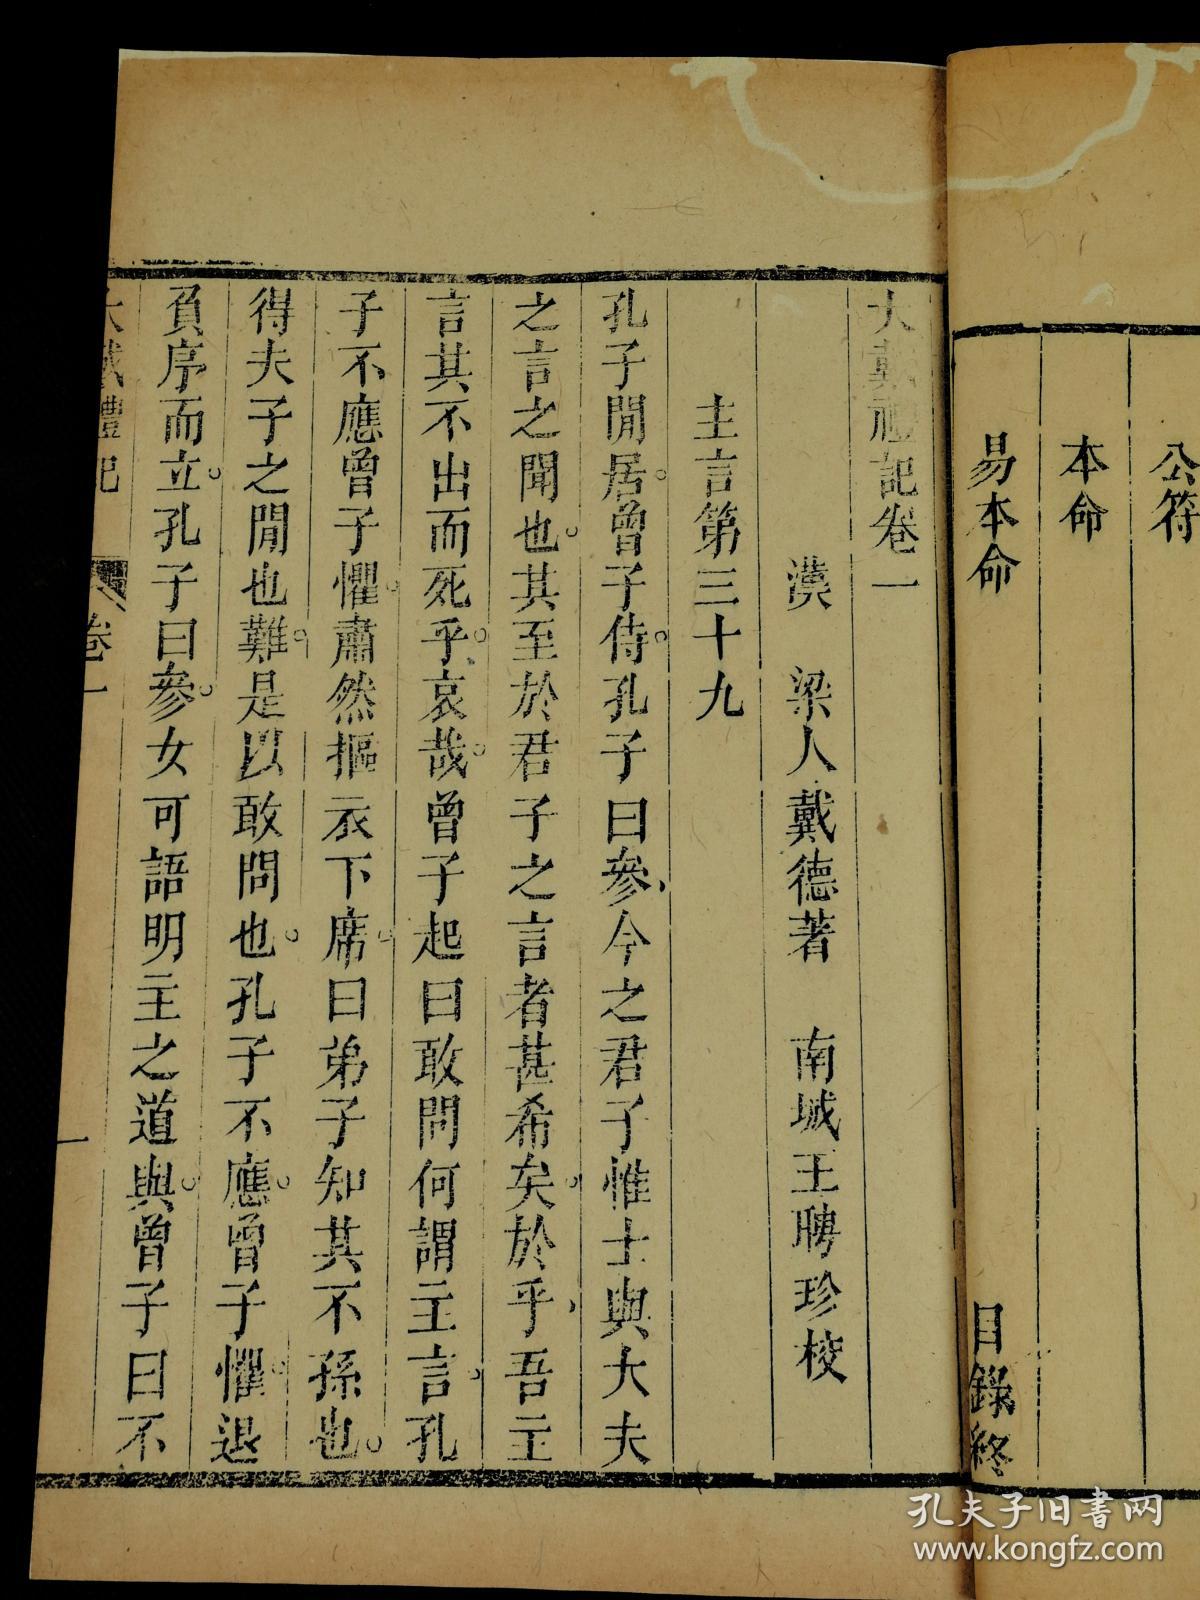 公符
本命
易本命
目錄終
大戴禮記卷一
漢 梁人戴德著 南城王聘珍校
主言第三十九
孔子閒居。曾子侍。孔子曰參、今之君子惟士與大夫
之言之聞也。其至於君子之言者甚希矣。於乎、吾主
言其不出而死乎。哀哉。曾子起曰敢問何謂主言、孔
子不應曾子懼。肅然摳衣下席。曰弟子知其不孫也。
得夫子之閒也難。是以敢問也。孔子不應。曾子懼。退
負序而立。孔子曰參。女可語明主之道與。曾子曰不
大戴禮記 卷一 一
孔夫子旧书网
www.kongfz.com